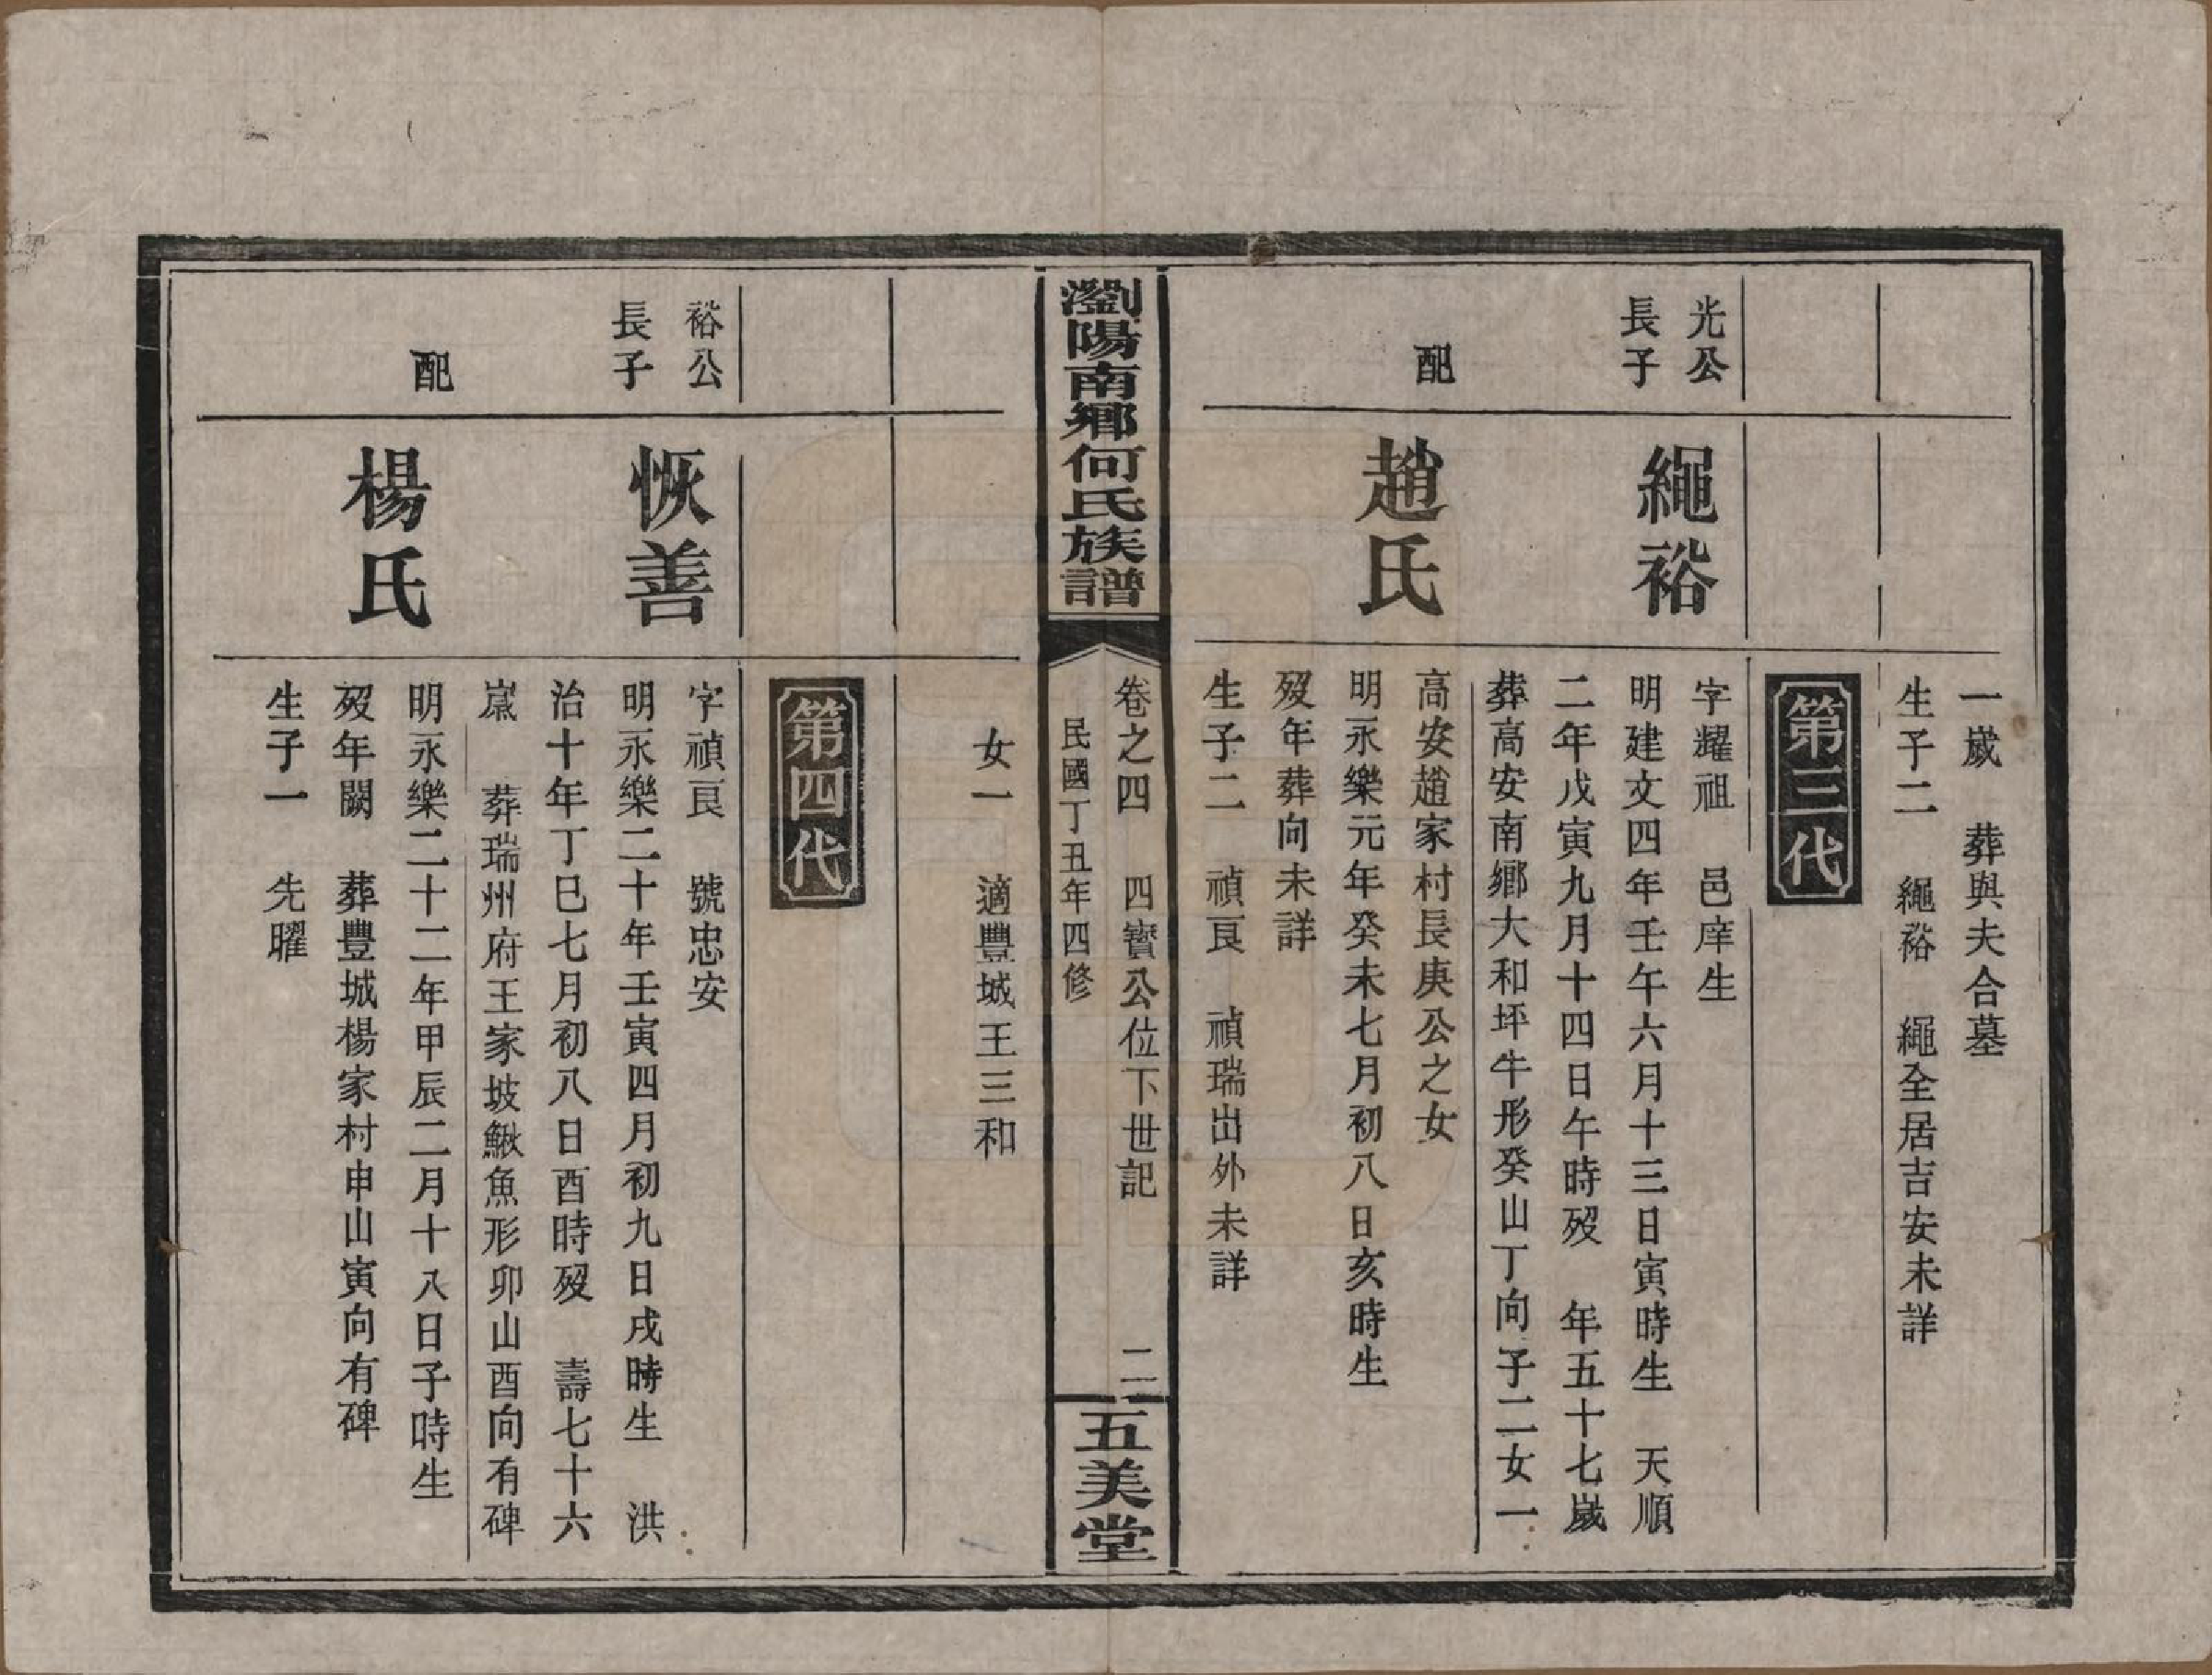 一歲　葬與夫合墓
生子二　繩裕　繩全居吉安未詳
第三代
光公
長子
繩裕
字耀祖　邑庠生
明建文四年壬午六月十三日寅時生　天順
二年戊寅九月十四日午時歿　年五十七歲
葬高安南鄉大和坪牛形癸山丁向子二女一
配
趙氏
高安趙家村長庚公之女
明永樂元年癸未七月初八日亥時生
歿年葬向未詳
生子二　禎良　禎瑞出外未詳
瀏陽南鄉何氏族譜
卷之四　四寶公位下世記　二
民國丁丑年四修
五美堂
女一　適豐城王三和
第四代
裕公
長子
恢善
字禎良　號忠安
明永樂二十年壬寅四月初九日戌時生　洪
治十年丁巳七月初八日酉時歿　壽七十六
歲　葬瑞州府王家坡鰍魚形卯山酉向有碑
配
楊氏
明永樂二十二年甲辰二月十八日子時生
歿年闕　葬豐城楊家村申山寅向有碑
生子一　先曜